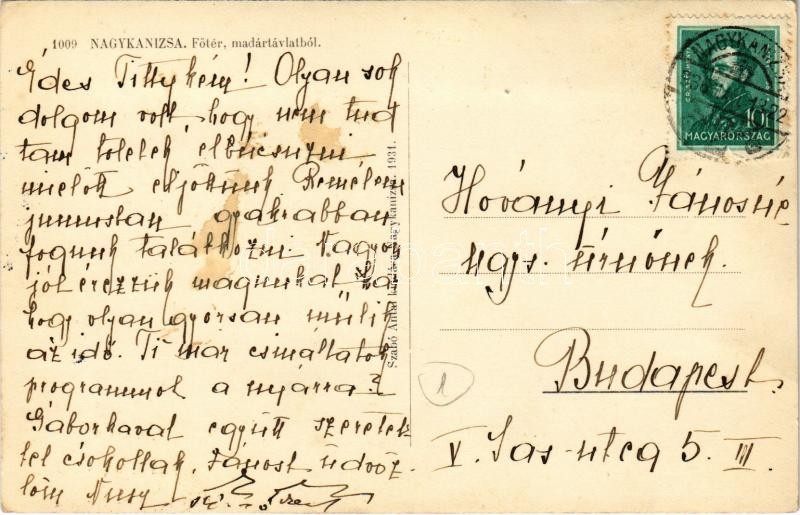 1009 NAGYKANIZSA. Főtér, madártávlatból.
Édes Tittykém! Olyan sok
dolgom volt, hogy nem tud
tam toletek elbucsuzni
mielőtt eljöttünk Remélem
juniusban gyakrabban
fogunk találkozni. Nagyon
jól érezzük magunkat
hogy olyan gyorsan múlik
az idő. Ti már csináltatok
programmot a nyárra?
Gáborkával együtt szeretet
tel csókollak, Jánost üdvöz
löm
Szabó Antal Nagykanizsa. 1931.
NAGYKANIZSA
10f
MAGYARORSZÁG
Hoványi Jánosné
ngs. úrnőnek.
Budapest.
V. Sas-utca 5. III.
1